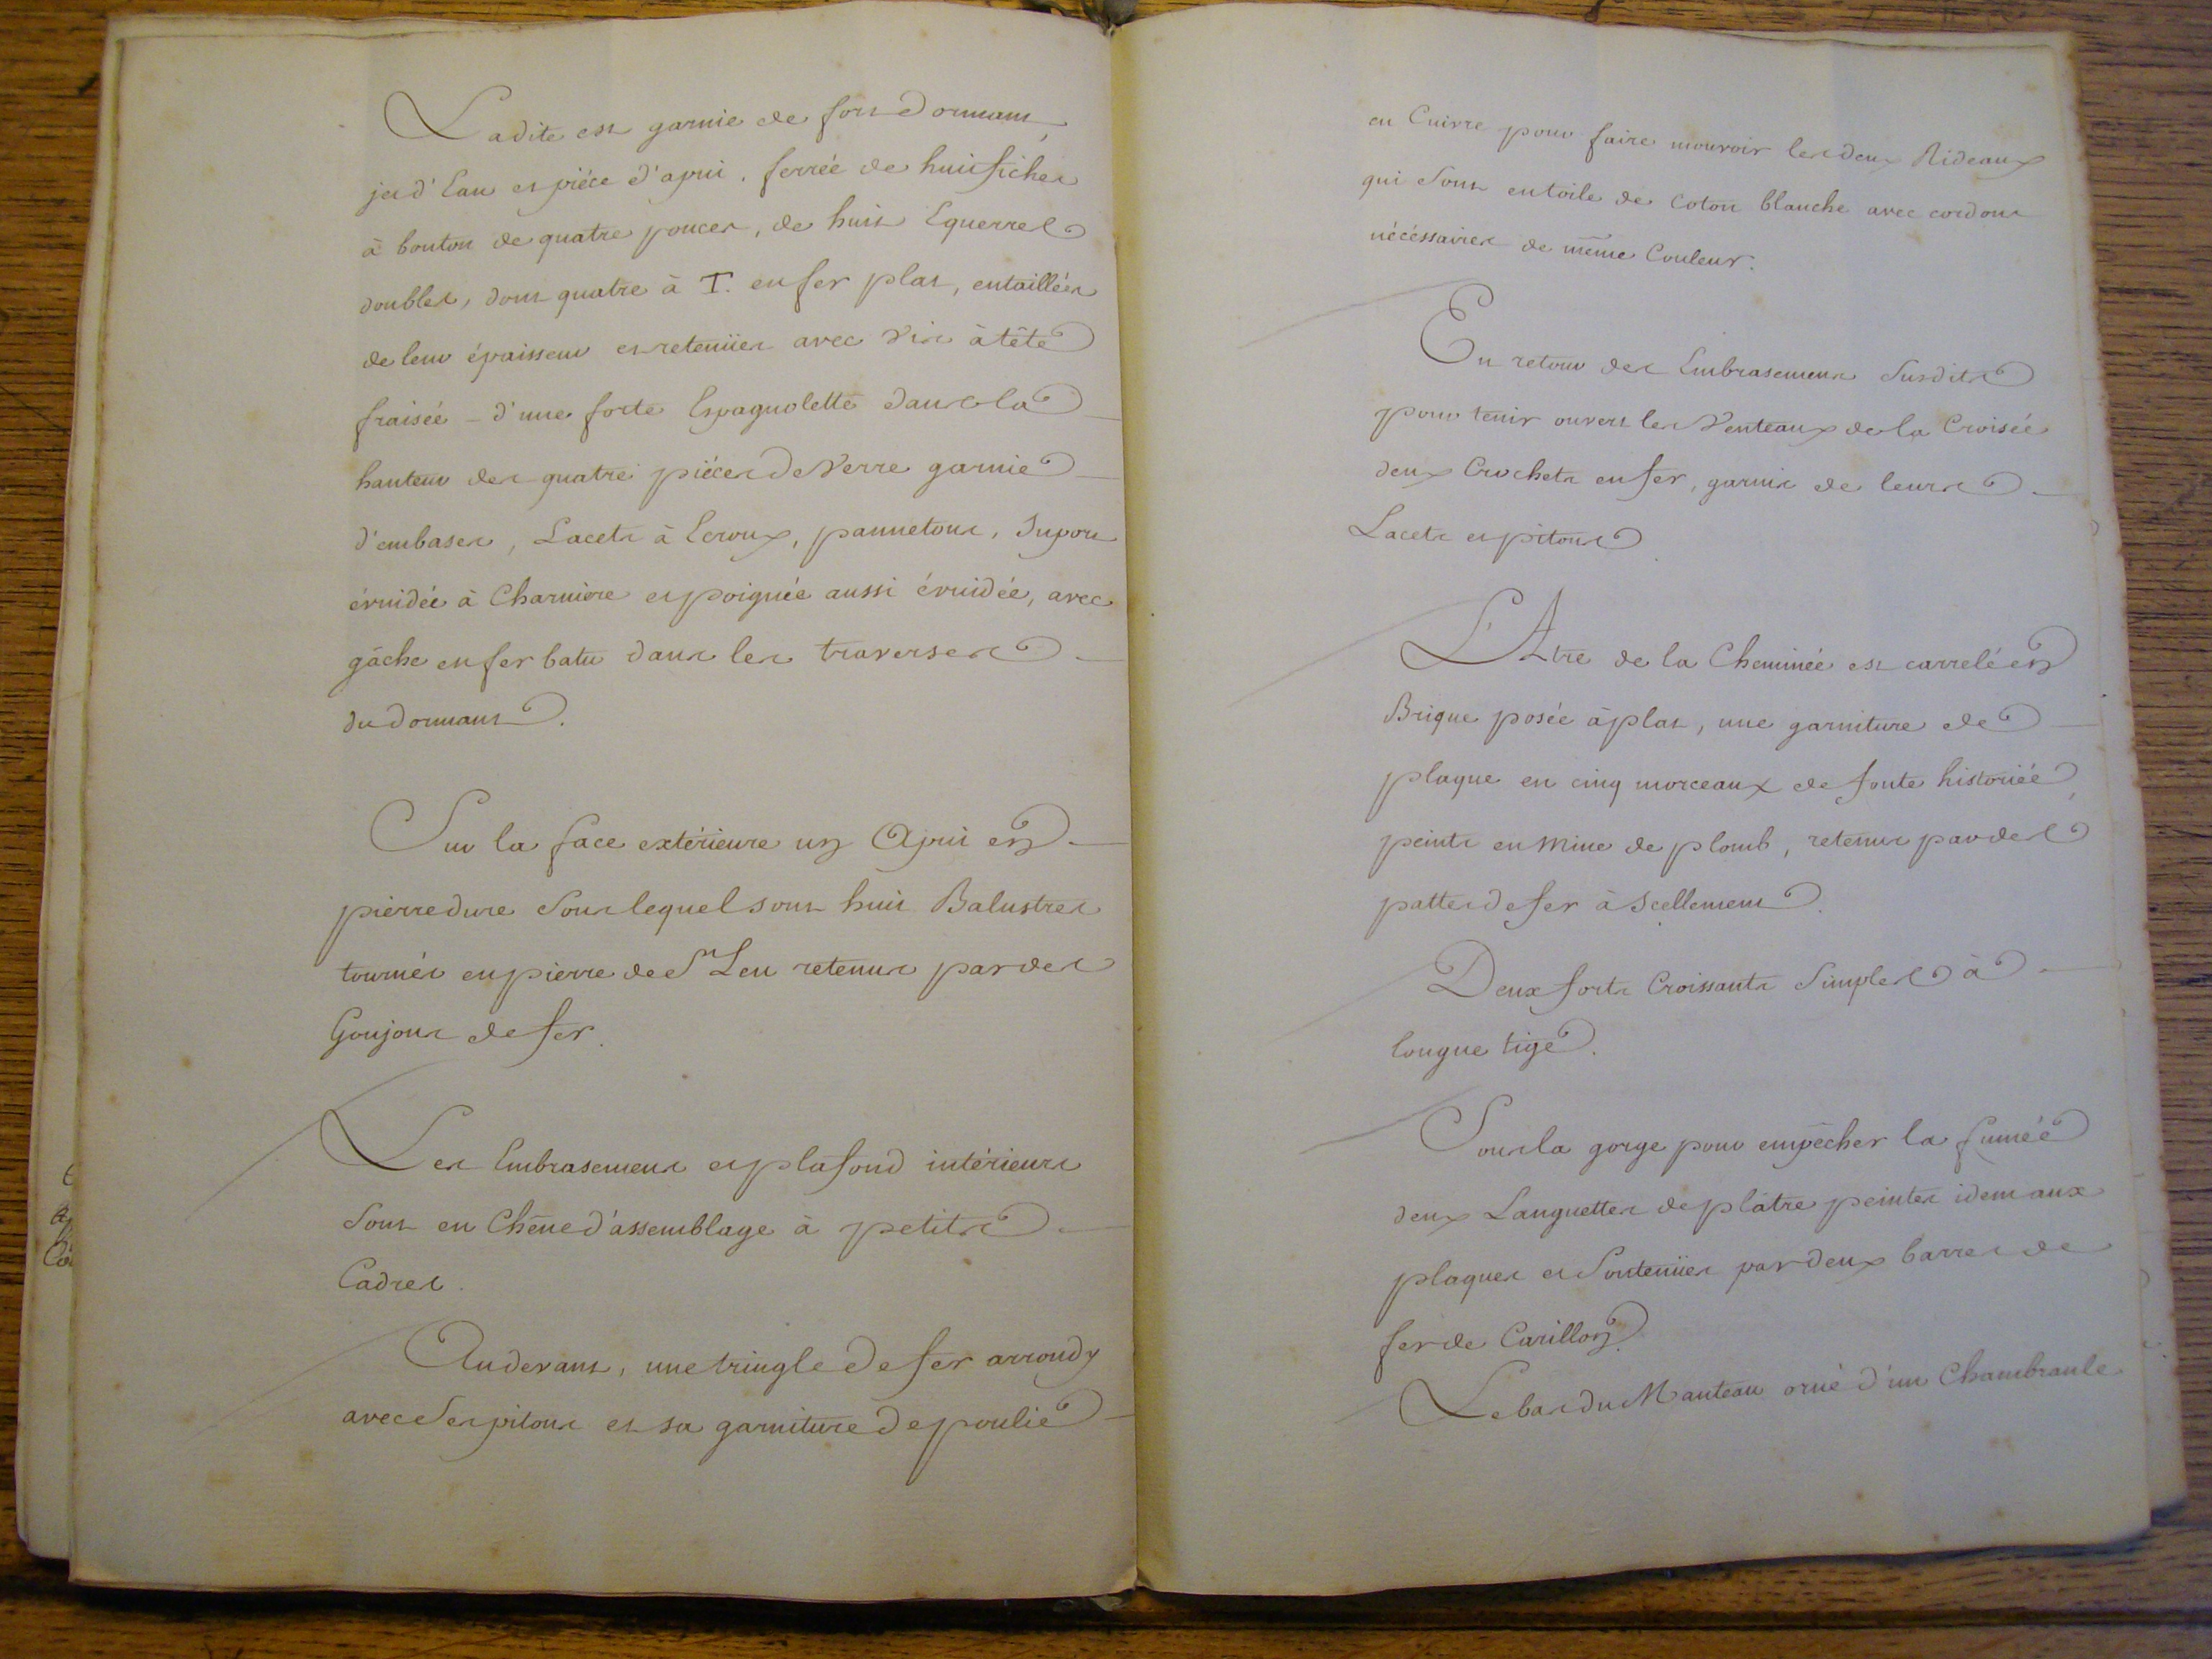 Ladite est garnie de fort dormant,
jet d'Eau et piéce d'apui, ferrée de huit fiches
à bouton de quatre pouces, de huit Equerres
doubles, dont quatre à T. en fer plat, entaillées
de leur épaisseur et retenües avec vis à tête
fraisée - d'une forte Espagnolette dans la
hauteur des quatre piéces de Verre garnie
d'embases, Lacets à Ecroux, pannetons, Suport
évuidée à Charniere et poignée aussi évuidée, avec
gâche en fer batu dans les traverses
du dormant.
Sur la face extérieure un Apui en
pierre dure sous lequel sont huit Balustres
tournés en pierre de St Leu retenus par des
Goujons de fer.
Les Embrasemens et plafond intérieurs
sont en Chêne d'assemblage à petits
Cadres.
Au devant, une tringle de fer arrondy
avec ses pitons et sa garniture de poulie
en Cuivre pour faire mouvoir les deux Rideaux
qui sont en toile de coton blanche avec cordons
nécéssaires de même Couleur.
En retour des Embrasemens susdits
pour tenir ouvert les Venteaux de la Croisée
deux Crochets en fer, garnis de leurs
Lacets et pitons.
L'Atre de la Cheminée est carrelé en
Brique posée à plat, une garniture de
plaque en cinq morceaux de fonte historiée,
peints en Mine de plomb, retenus par des
pattes de fer à scellement.
Deux forts Croissants simples à
longue tige.
Sous la gorge pour empêcher la fumée
deux Languettes de plâtre peintes idem aux
plaques et soutenües par deux barres de
fer de Carillon.
Le bas du Manteau orné d'un Chambranle